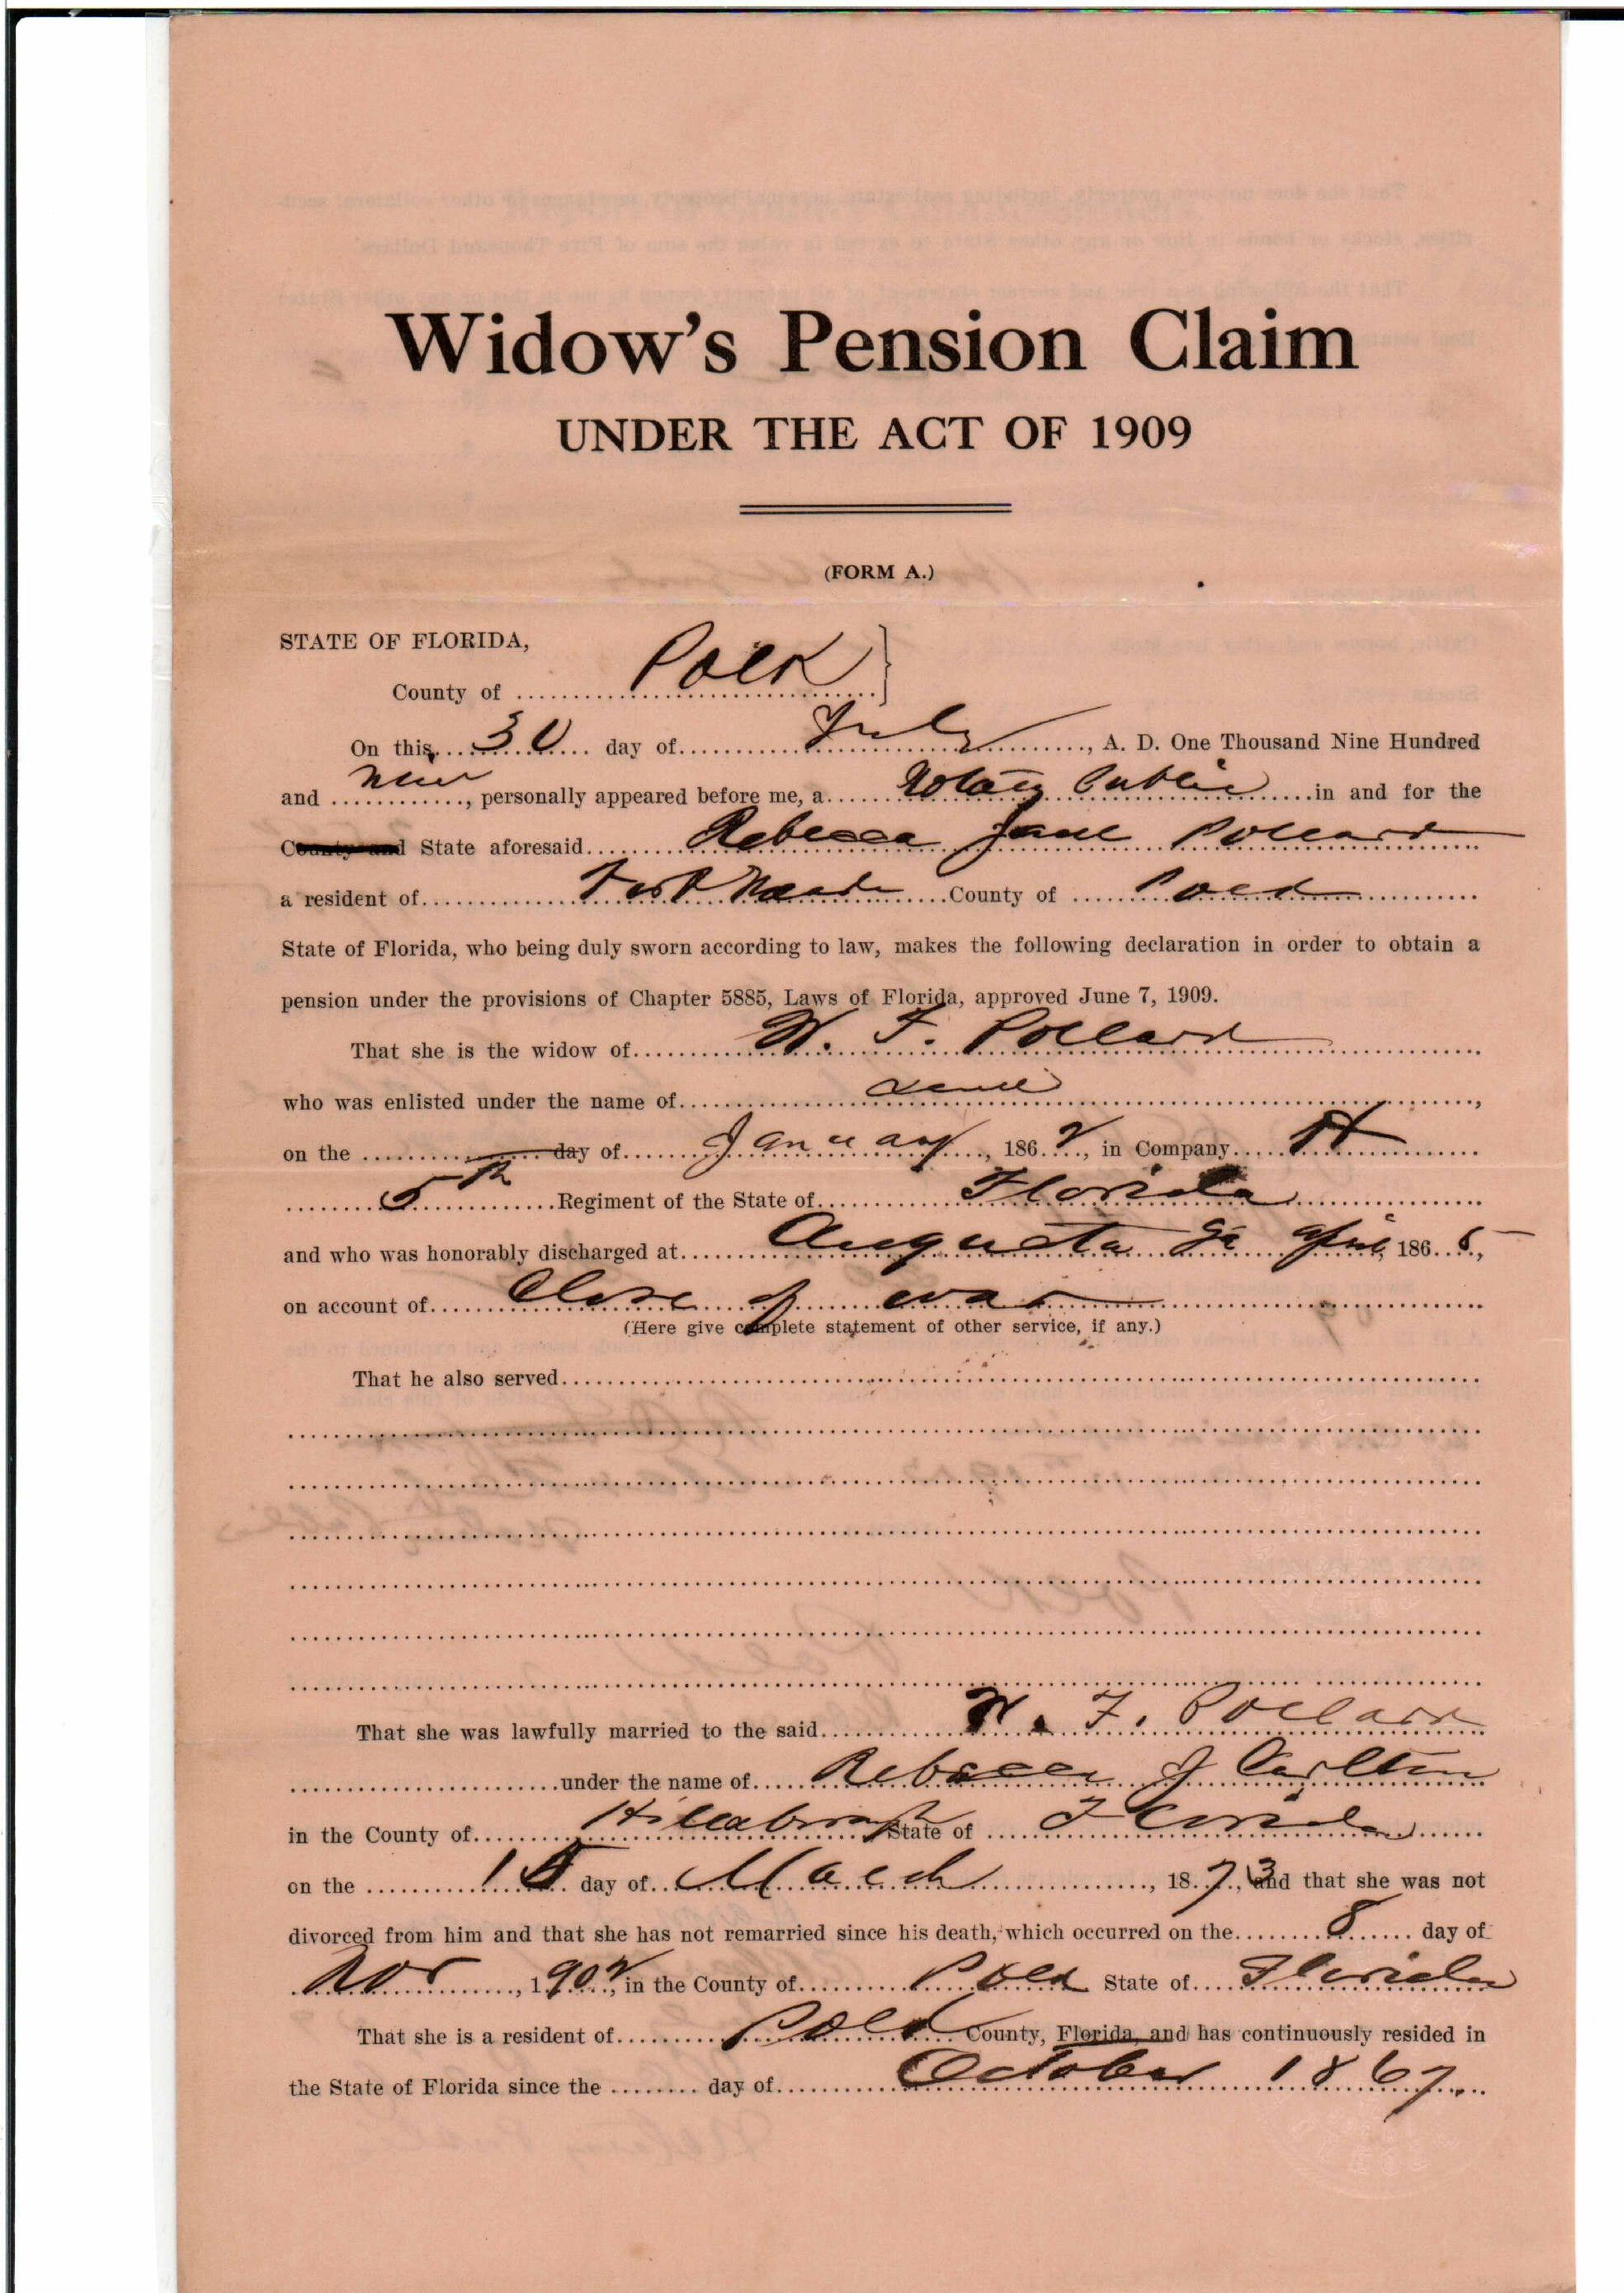 Widow's Pension Claim
UNDER THE ACT OF 1909
(FORM A.)
STATE OF FLORIDA,
County of Polk
On this 30 day of July, A. D. One Thousand Nine Hundred
and nine, personally appeared before me, a Notary Public in and for the
County and State aforesaid Rebecca Jane Pollard
a resident of Fort Meade County of Polk
State of Florida, who being duly sworn according to law, makes the following declaration in order to obtain a
pension under the provisions of Chapter 5885, Laws of Florida, approved June 7, 1909.
That she is the widow of W. F. Pollard
who was enlisted under the name of same,
on the day of January, 1862, in Company H
5th Regiment of the State of Florida
and who was honorably discharged at Augusta Ga April, 1865,
on account of Close of war
(Here give complete statement of other service, if any.)
That he also served
That she was lawfully married to the said W. F. Pollard
under the name of Rebecca J Carlton
in the County of Hillsborough State of Florida
on the day of March, 1873, and that she was not
divorced from him and that she has not remarried since his death, which occurred on the 8 day of
Nov, 1902, in the County of Polk State of Florida
That she is a resident of Polk County, Florida, and has continuously resided in
the State of Florida since the day of October 1867